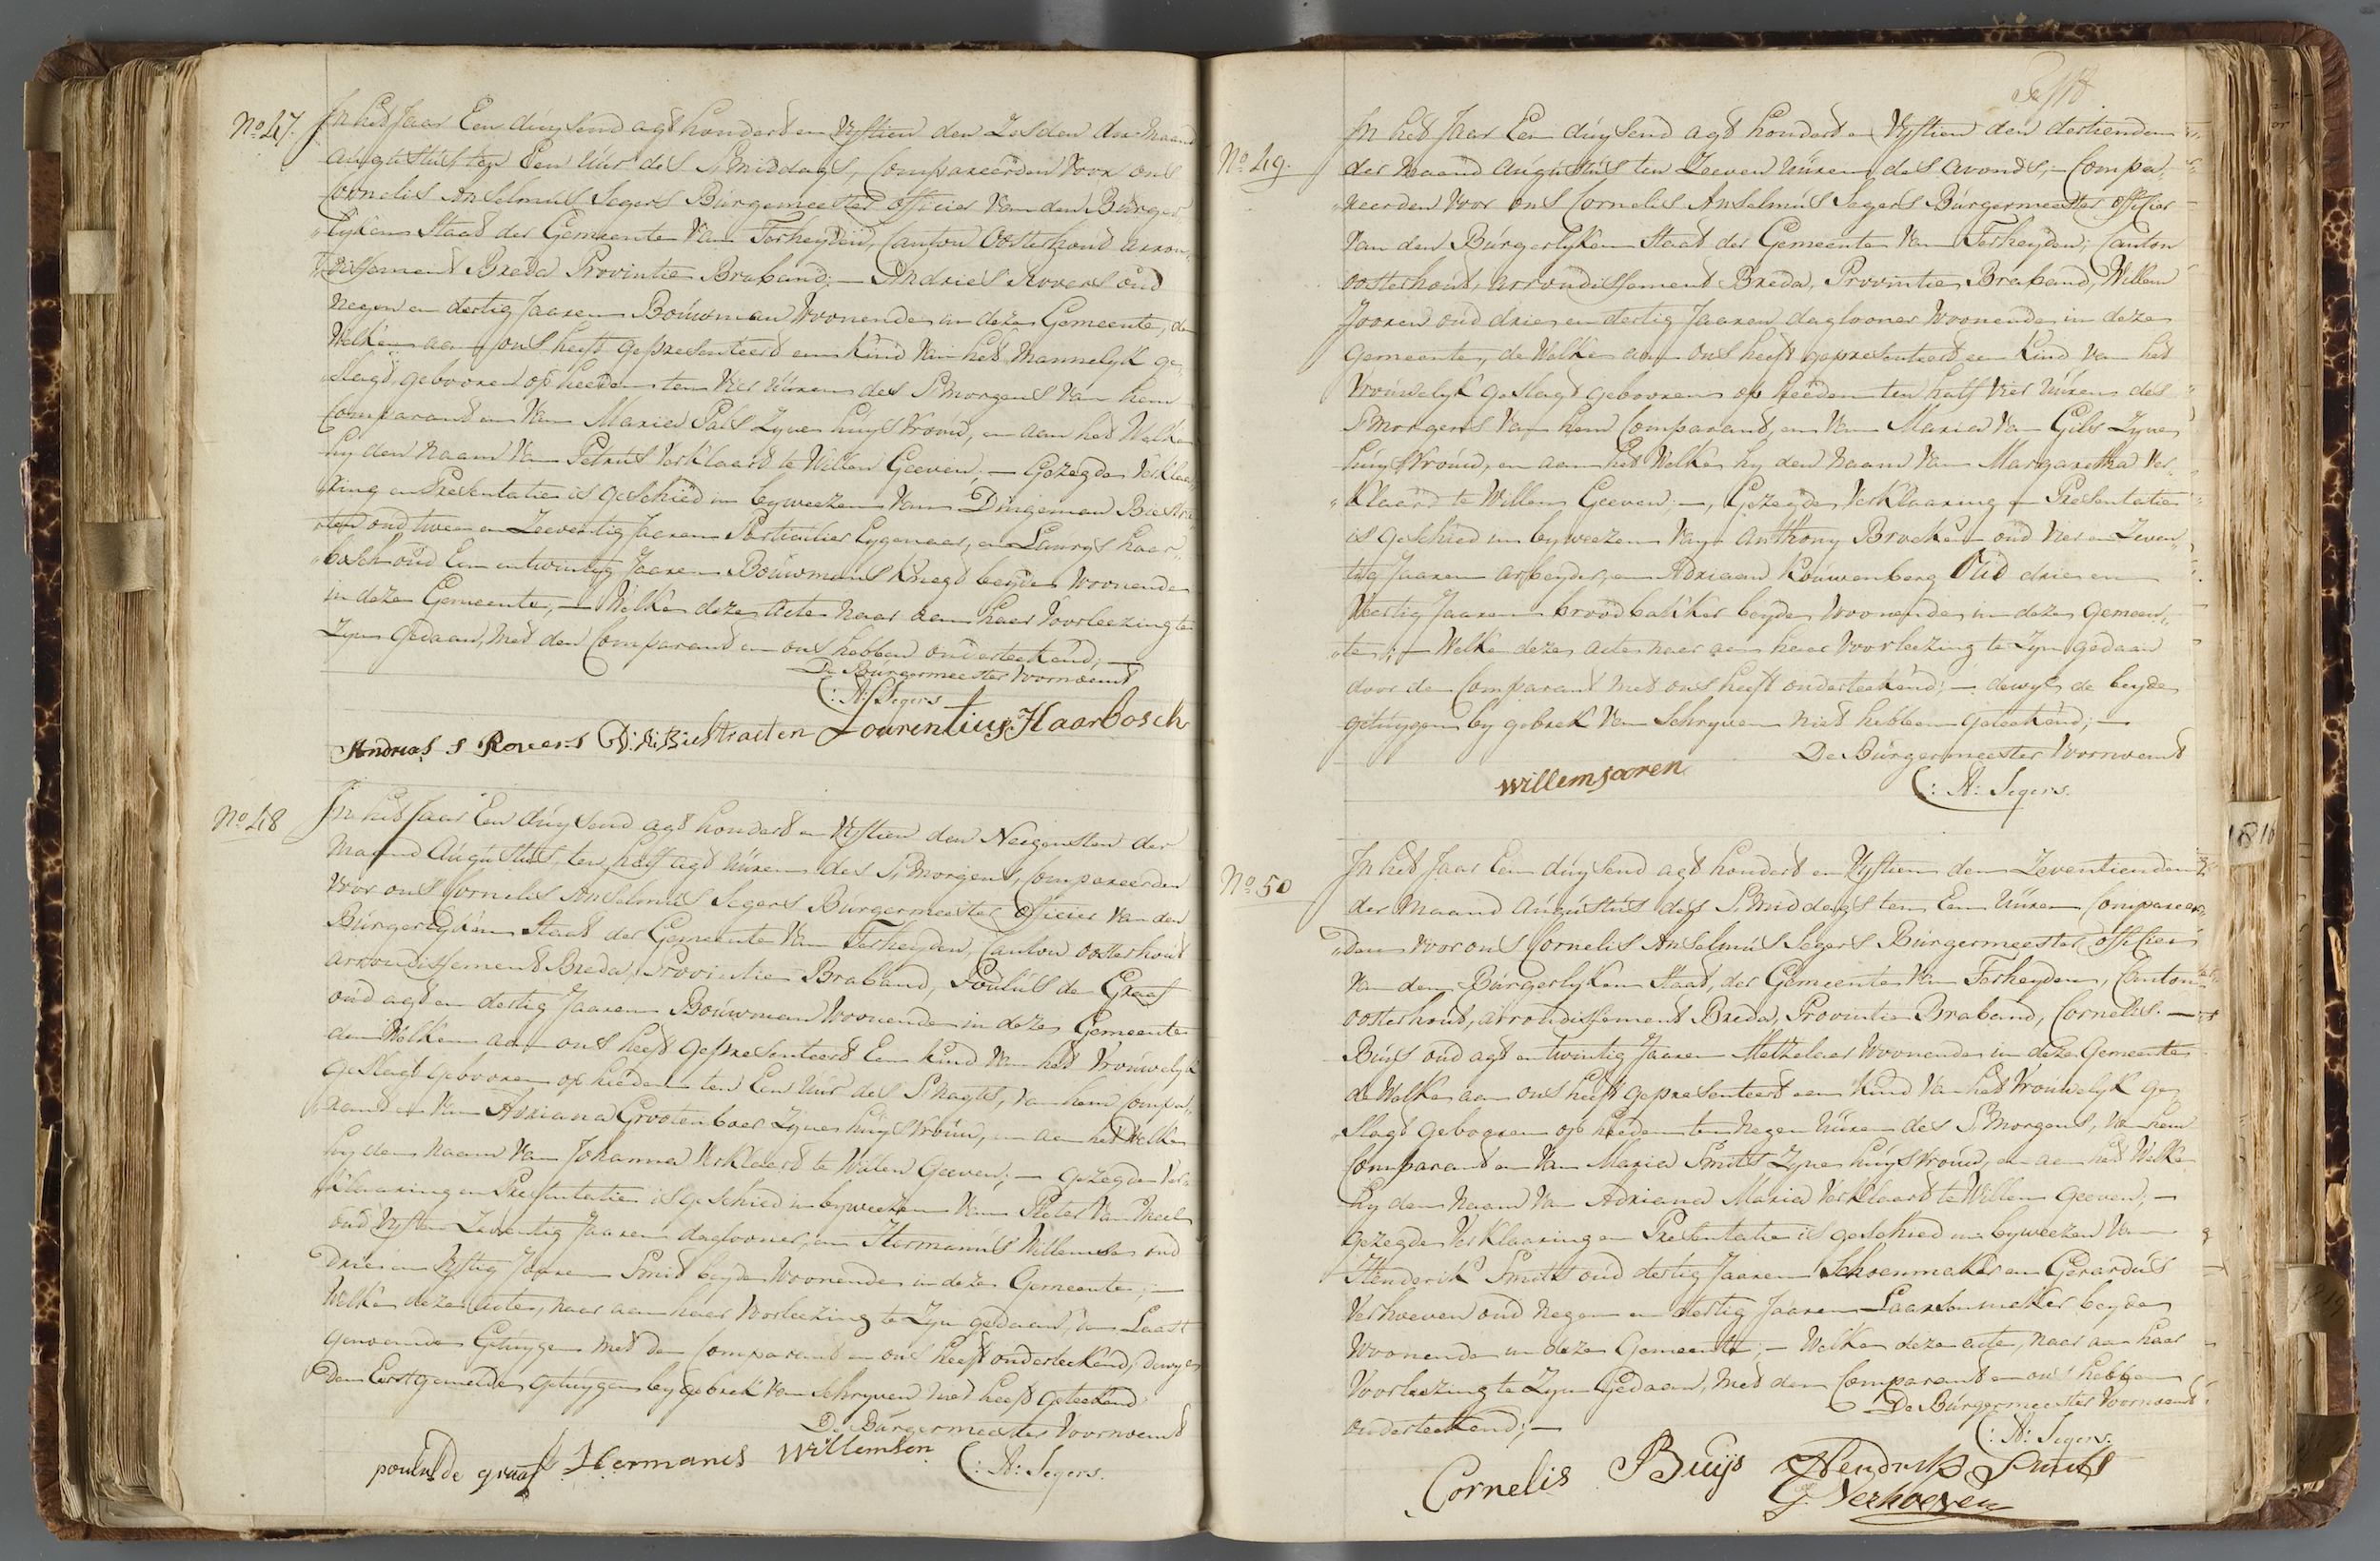 No. 47.
In het Jaar Een duysend agt hondert en Vyftien den Zesden der Maand
Augustus ten Een Uur des S'middags, Compareerden Voor ons
Cornelis Anselmus Segers Burgemeester officier Van den Burger
"lyken Staat der Gemeente Van Terheyden, Canton Oosterhout arron"
"dissement Breda Provintie Braband; — Andries Rovers oud
Negen en dertig Jaaren Bouwman Woonende in deze Gemeente, de
Welken aan ons heeft gepresenteerd een kind Van het Mannelyk ge"
"slagt, gebooren op heeden ten Vier Uuren des S'morgens Van hem
Comparant en Van Maria Pals Zyne huysvrouw, en aan het Welken
hy den Naam Van Petrus Verklaard te Willen Geeven; — Gezegde Verklaa"
"ring en Presentatie is geschied in byweezen Van Dingeman Biestra"
"ten oud twee en Zeeventig Jaaren Particulier Eygenaar, en Laurys haar"
"bosch oud Een en twintig Jaaren Bouwmans knegt beyde Woonende
in deze Gemeente, — Welke deze Acte Naar aan haar Voorleezing te
Zyn gedaan, Met den Comparant en ons hebben onderteekend; —
De Burgermeester Voornoemt
C: A: Segers
Andries s Rovers D: A: Biestraeten Lourentius Haarbosch
No. 48
In het Jaar Een duysend agt hondert en Vyftien den Neegensten der
Maand Augustus, ten half agt Uuren des S'Morgens, Compareerden
Voor ons Cornelis Anselmus Segers Burgermeester Officier Van den
Burgerlyken Staat der Gemeente Van Terheyden, Canton oosterhout
arrondissement Breda, Provintie Braband, Poulus de Graaf
oud agt en dertig Jaaren Bouwman Woonende in deze Gemeente
den Welken aan ons heeft gepresenteerd Een kind Van het Vrouwelyk
geslagt gebooren op heeden ten Een Uur des S'Nagts, Van hem Compa"
"rant en Van Adriana Grootenboer Zyne huysvrouw, en aan het Welke
hy den Naam Van Johanna Verklaard te Willen Geeven; — gezegde Ver"
"klaaring en Presentatie is geschied in byweezen Van Pieter Van Meel
oud Vyf en Zeventig Jaaren daglooner, en Hermanus Willemsen oud
Drie en Vyftig Jaaren Smid beyde Woonende in deze Gemeente; —
Welke deze Acte, naar aan haar Voorleezing te Zyn gedaan, den Laast
genoemde Getuygen met den Comparant en ons heeft onderteekend; dewyl
Den Eerstgemelde getuygen by gebrek Van Schryven niet heeft geteekend
De Burgermeester Voornoemt
poulus de graaf Hermanes Willemsen C: A: Segers.
No. 49.
In het Jaar Een duysend agt hondert en Vyftien den dertienden
der Maand Augustus ten Zeeven Uuren des avonds, — Compa"
"reerden Voor ons Cornelis Anselmus Segers Burgermeester officier
Van den Burgerlyken Staat der Gemeente Van Terheyden; Canton
oosterhout, arrondissement Breda, Provintie Braband, Willem
Jooren oud drie en dertig Jaaren daglooner Woonende in deze
Gemeente, de Welke aan ons heeft gepresenteerd een Kind Van het
Vrouwelyk geslagt gebooren op heeden ten half Vier Uuren des
S'morgens Van hem Comparant, en Van Maria Van Gils Zyne
huysvrouw, en aan het Welke hy den Naam Van Margaretha Ver"
"klaard te Willen Geeven; —, Gezegde Verklaaring en Presentatie
is geschied in byweezen Van Anthony Brocken oud Vier en Zeven"
tig Jaaren arbeyder, en Adriaan Kouwenberg Oud drie en
Veertig Jaaren broodbakker beyde Woonende in deze gemeen"
"te; — Welke deze acte naar aan haar Voorleezing te Zyn gedaan
door den Comparant Met ons heeft onderteekend; — dewyl de beyde
getuygen by gebrek Van Schryven niet hebben geteekend; —
De Burgermeester Voornoemt
willem jooren C: A: Segers.
No. 50
In het Jaar Een duysend agt hondert en Vyftien den Zeventienden
der Maand Augustus des S'Middags ten Een Uuren Compareer"
"den Voor ons Cornelis Anselmus Segers Burgermeester officier
Van den Burgerlyken Staat, der Gemeente Van Terheyden, Canton
Oosterhout, arrondissement Breda, Provintie Braband, Cornelis —
Buys oud agt en twintig Jaaren Metzelaar Woonende in deze Gemeente
de Welke aan ons heeft gepresenteerd een Kind Van het Vrouwelyk ge"
"slagt gebooren op heeden ten Negen Uuren des S'Morgens, Van hem
Comparant en Van Maria Smits Zyne huysvrouw, en aan het Welke
hy den Naam Van Adriana Maria Verklaard te Willen Geeven; —
gezegde Verklaaring en Presentatie is geschied in byweezen Van
Henderik Smits oud dertig Jaaren Schoenmaker en Gerardus
Verhoeven oud Negen en dertig Jaaren Laarsenmaker beyde
Woonende in deze Gemeente; — Welke deze acte, naar aan haar
Voorleezing te Zyn Gedaan, Met den Comparant en ons hebben
onderteekend; —
De Burgermeester Voornoemt
C: A: Segers.
Cornelis Buijs Hendrik Smits
G. Verhoeven